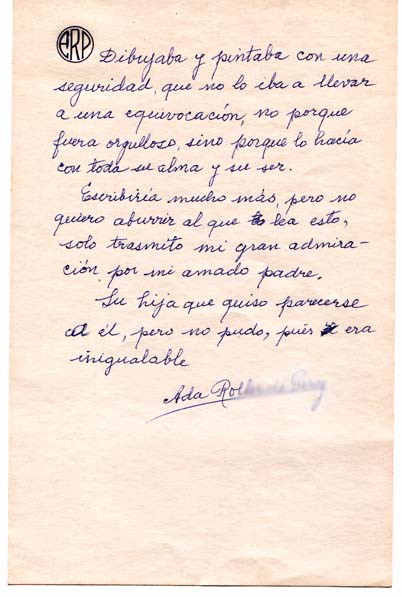 ARP
Dibujaba y pintaba con una
seguridad, que no lo iba a llevar
a una equivocación, no porque
fuera orgulloso, sino porque lo hacía
con toda su alma y su ser.
Escribiría mucho más, pero no
quiero aburrir al que lea esto,
solo trasmito mi gran admira-
ción por mi amado padre.
Su hija que quiso parecerse
a él, pero no pudo, pués era
inigualable
Ada